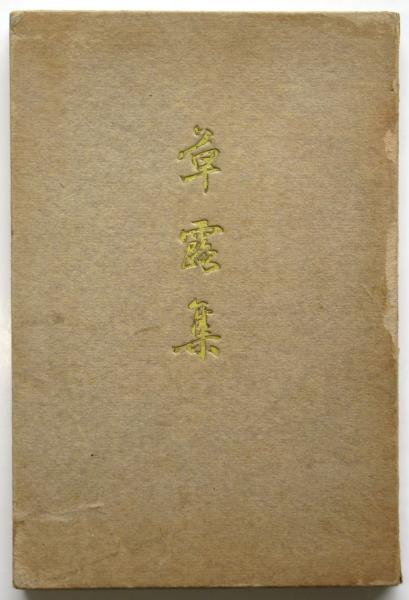 草露集